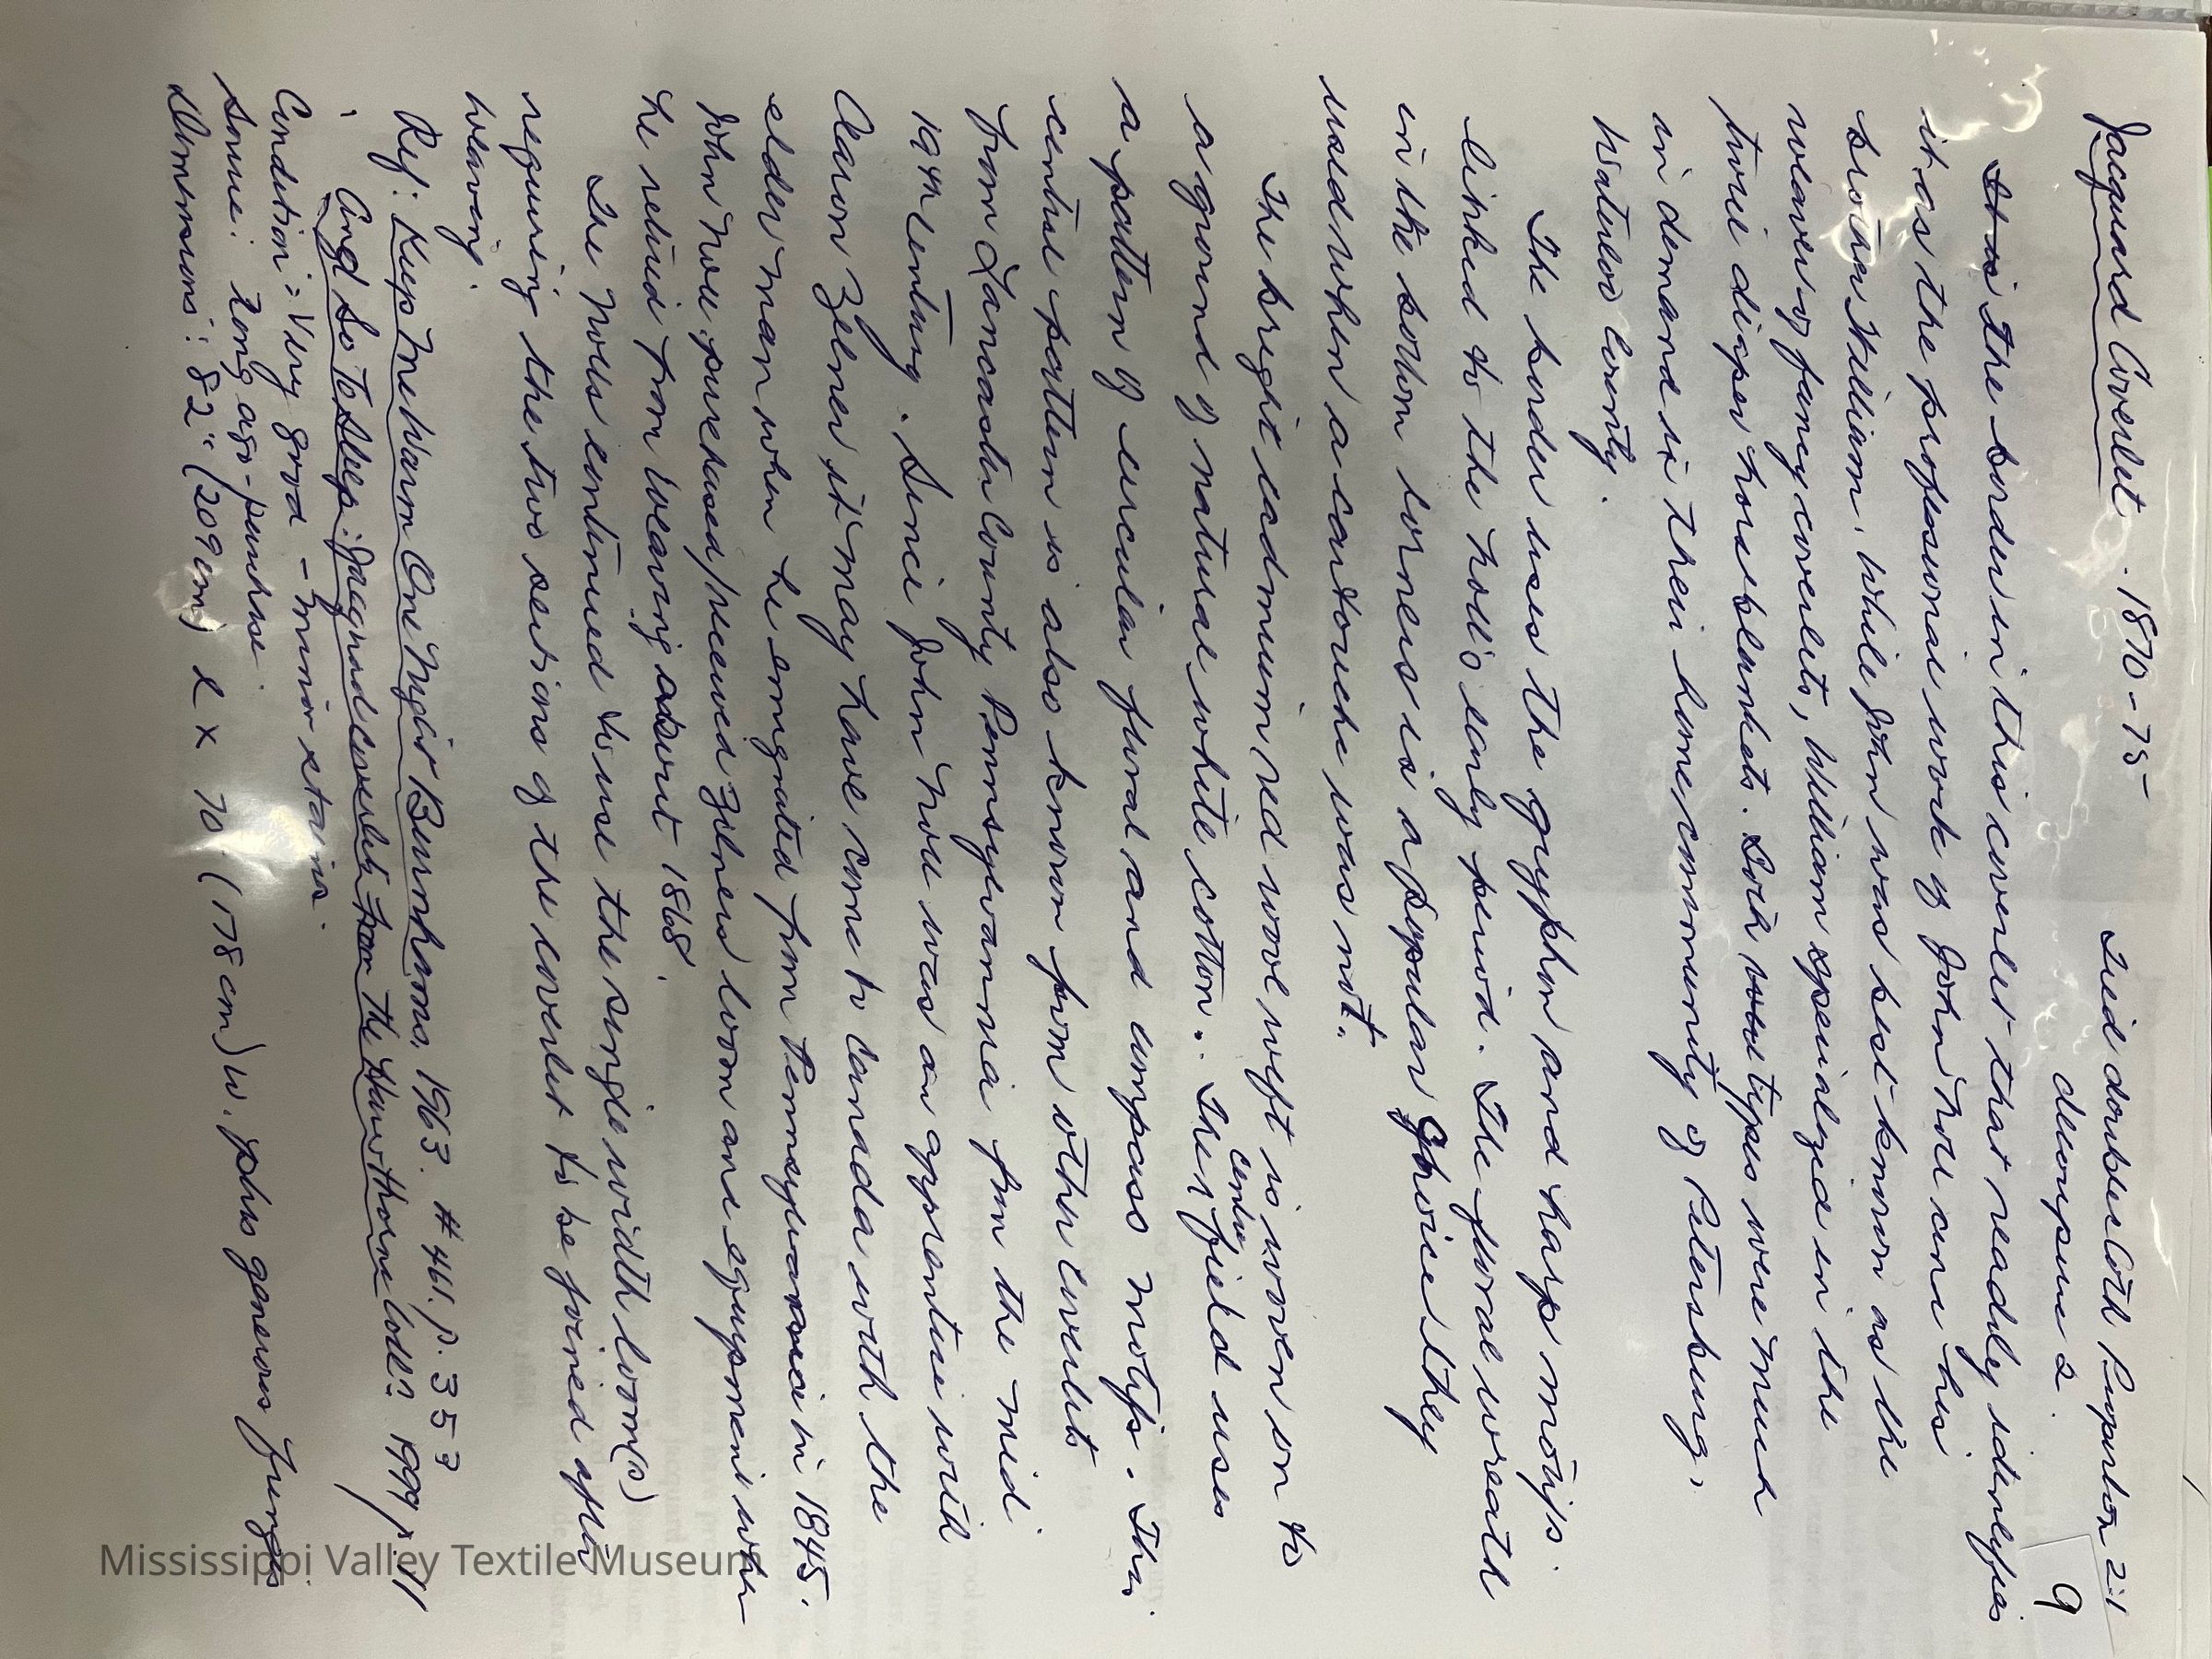 Jacquard Coverlet. 1870-75 Tied doublecloth Proportion 2:1
decoupure 2. 9
It is The border in this coverlet that readily identifies
it as the professional work of John Noll and his
brother William. While John was best known as the
weaver of fancy coverlets, William specialized in the
twice diaper horse blankets. Both types were much
in demand in their home community of Petersburg,
Waterloo County.
The border uses the gryphon and harp motifs
linked to the Noll's early period. The floral wreath
in the bottom corners is a popular choice they
used when a cartouche was not.
The bright cadmium red wool weft is woven on to
a ground of natural white cotton. The centre field uses
a pattern of circular floral and compass motifs. This
centre pattern is also known from other coverlets
from Lancaster County Pennsylvania from the mid
19th Century. Since John Noll was an apprentice with
Aaron Zelner it may have come to Canada with the
elder man when he emigrated from Pennsylvania in 1845.
John Noll purchased/received Zelner's loom and equipment when
he retired from weaving about 1868.
The Nolls continued to use the single width loom(s)
requiring the two sections of the coverlet to be joined after
weaving.
Ref: Keep Me Warm One Night Burnhams, 1963. # 461. p. 353
And So To Sleep: Jacquard Coverlets from the Hawthorne Coll'n 1999 p. 11
Condition: Very good - minor stains.
Source: Long ago - purchase.
Dimensions: 82" (209 cm) l x 70 (178 cm) w. plus generous fringes
Mississippi Valley Textile Museum